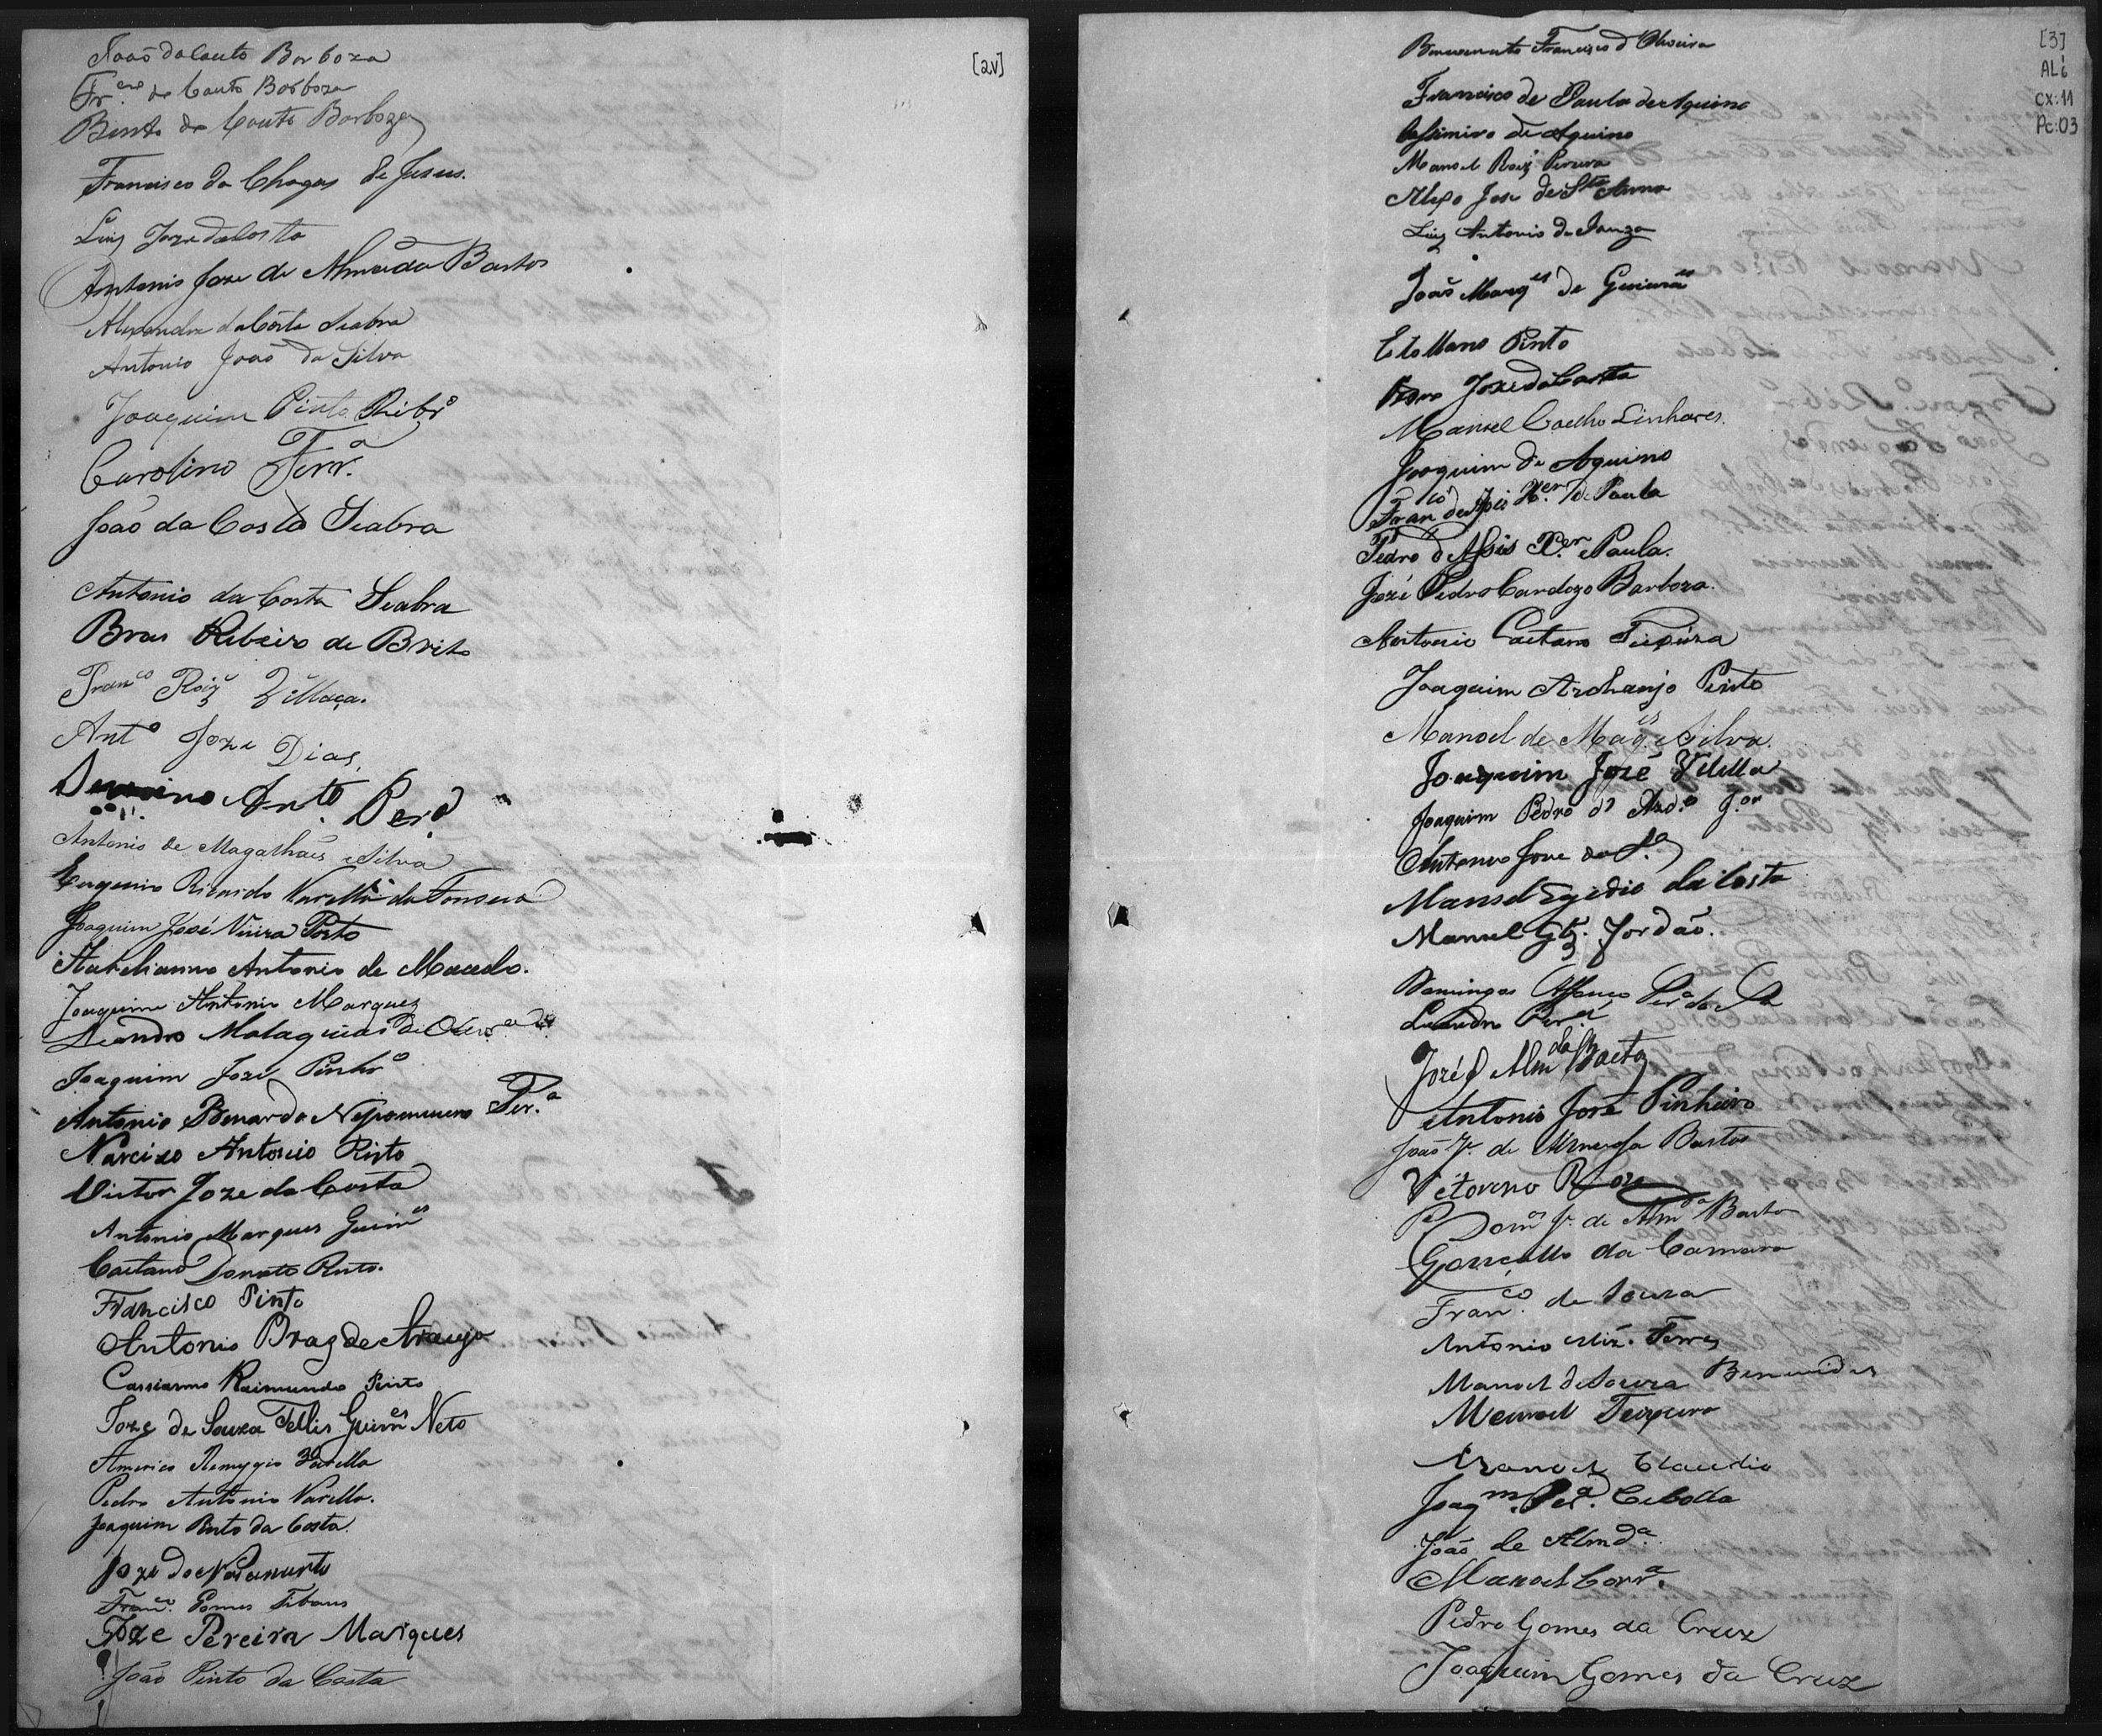 [2v]
João do Couto Borboza
Fr.co do Couto Borboza
Bento do Couto Borboza
Francisco da Chagas de Jesus.
Luiz Joze da Costa
Antonio Joze de Almeida Bastos
Alexandre da Costa Seabra
Antonio João da Silva
Joaquim Pinto Ribr.o
Carolino Ferr.a
João da Costa Seabra
Antonio da Costa Seabra
Bras Ribeiro de Brito
Fran.co Roiz Villaça.
Ant.o Joze Dias,
Ant.o Per.a
Antonio de Magalhães e Silva
Eugenio Ricardo Varella da Fonseca
Joaquim José Vieira Porto
Aurelianno Antonio de Macedo.
Joaquim Antonio Marques
Leandro Malaquias de
Joaquim Joze Pinhr.o
Antonio Bernardo Nepomuceno Per.a
Narcizo Antonio Pinto
Victor Joze da Costa
Antonio Marques Guim.es
Caetano Donato Pinto.
Francisco Pinto
Antonio Braz de Araujo
Cassianno Raimundo Pinto
Joze de Souza Telles Guim.es Neto
Americo Remygio Varella
Pedro Antonio Varella.
Joaquim Pinto da Costa.
Joze do Nascimento
Fran.co Gomes
Joze Pereira Marques
João Pinto da Costa
[3]
AL i
CX: 11
Pc: 03
Francisco d'Oliveira
Francisco de Paula de Aquino
Casimiro de Aquino
Manoel Roiz Pereira
Alexo Jose de Sta Anna
Luiz Antonio de Souza
João Marq.es de Guimarães
Pinto
Joze da Costa
Manoel Coelho Linhares.
Joaquim de Aquino
Fran.co de Assis X.er de Paula
Pedro d'Assis X.er Paula.
José Pedro Cardozo Barboza.
Antonio Caetano Teixeira
Joaquim Archanjo Pinto
Manoel de Mag.es e Silva.
Joaquim José Vilella
Joaquim Pedro d' Azd.o J.or
Antonio Jose da S.a
Manoel Egidio da Costa
Manuel Glz. Jordão.
Domingos Affonço Per.a da S.a
Leandro Per.a
José d' Alm.da Baeta
Antonio José Pinheiro
João J.e de Almeida Bastos
Vetoreno Roza
P.e Dom.os J.e de Alm.da Bastos
Gonçallo da Camara
Fran.co de Souza
Antonio Miz. Torres
Manoel de Souza Benevides
Manoel Teixeira
Manoel Claudio
Joaq.m Per.a Cebolla
João de Almd.a
Manoel Corr.a
Pedro Gomes da Cruz
Joaquim Gomes da Cruz